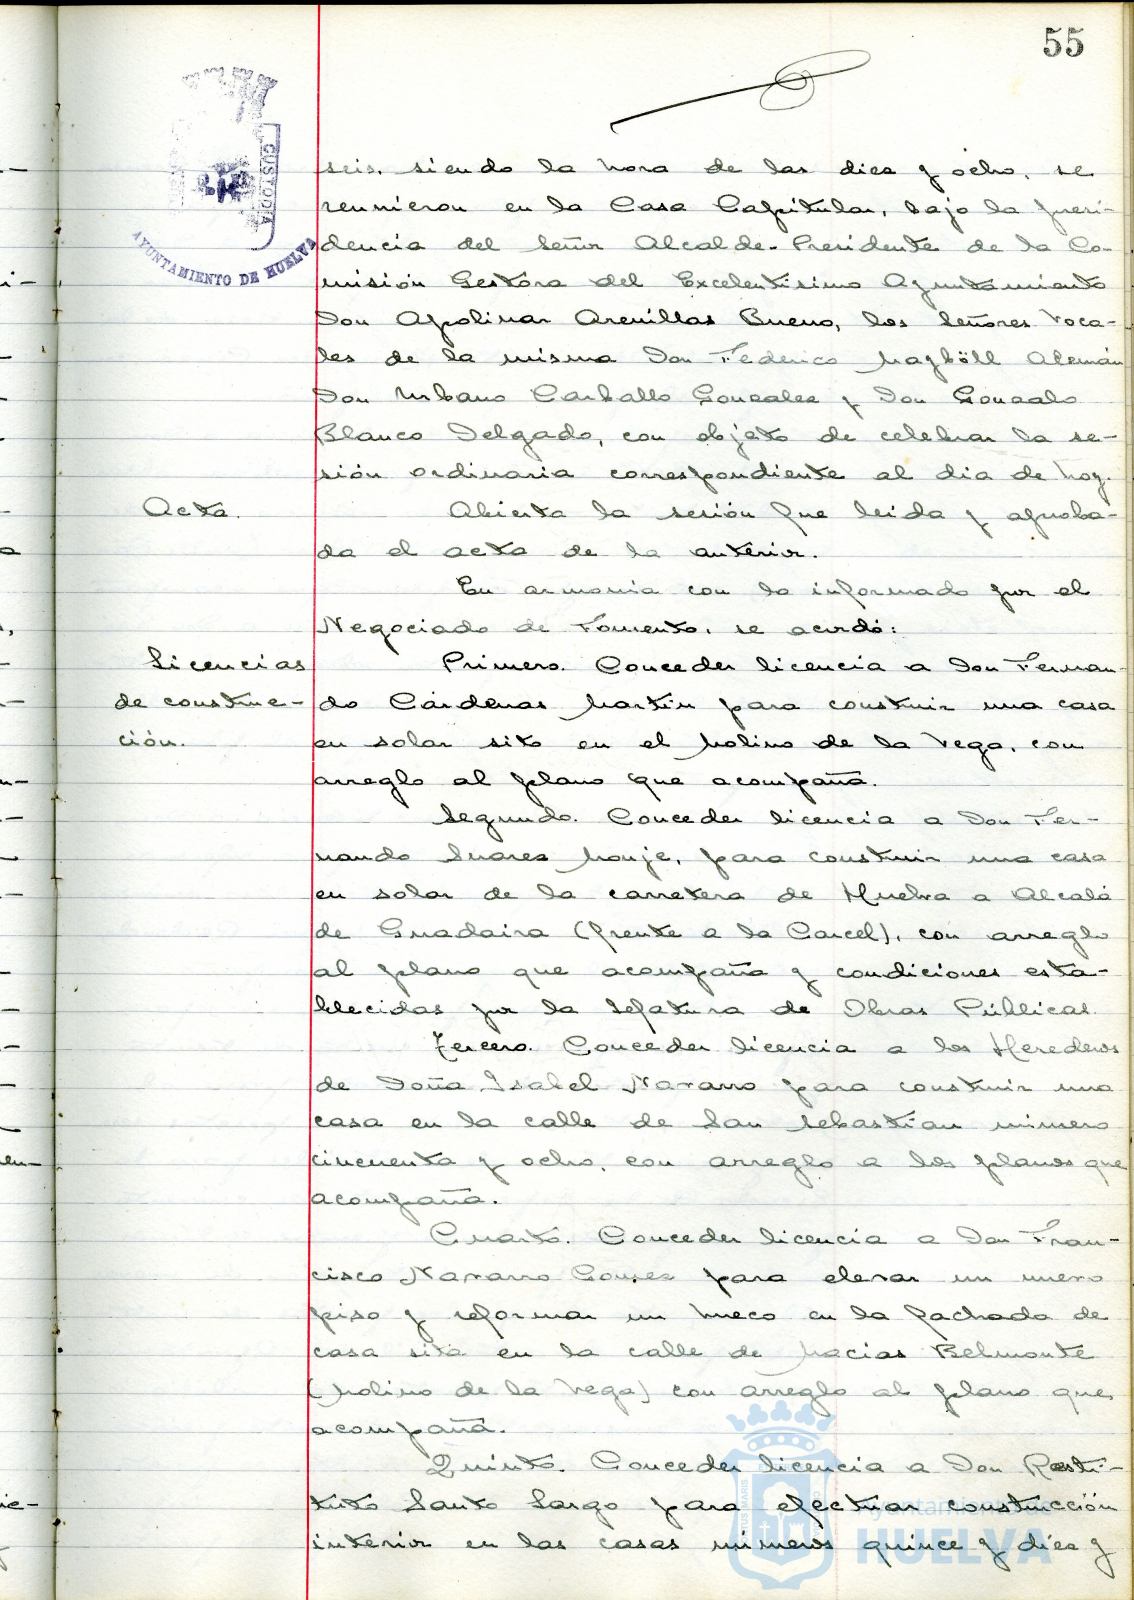 55
CUSTODIA
AYUNTAMIENTO DE HUELVA
seis, siendo la hora de las diez y ocho, se
reunieron en la Casa Capitular, bajo la presi-
dencia del Señor Alcalde-Presidente de la Co-
misión Gestora del Excelentisimo Ayuntamiento
Don Apolinar Arenillas Bueno, los Señores Voca-
les de la misma Don Federico Mayböll Alemán
Don Urbano Carballo Gonzalez y Don Gonzalo
Blanco Delgado, con objeto de celebrar la se-
sión ordinaria correspondiente al dia de hoy.
Acta.
Abierta la sesión fue leida y aproba-
da el acta de la anterior.
En armonia con lo informado por el
Negociado de Fomento, se acordó:
Licencias
de construc-
ción.
Primero. Conceder licencia a Don Fernan-
do Cárdenas Martín para construir una casa
en solar sito en el Molino de la Vega, con
arreglo al plano que acompaña.
Segundo. Conceder licencia a Don Fer-
nando Suarez Monje, para construir una casa
en solar de la carretera de Huelva a Alcalá
de Guadaira (frente a la Carcel), con arreglo
al plano que acompaña y condiciones esta-
blecidas por la Jefatura de Obras Públicas.
Tercero. Conceder licencia a los Herederos
de Doña Isabel Navarro para construir una
casa en la calle de San Sebastian número
cincuenta y ocho, con arreglo a los planos que
acompaña.
Cuarto. Conceder licencia a Don Fran-
cisco Navarro Gomez para elevar un nuevo
piso y reformar un hueco en la fachada de
casa sita en la calle de Macias Belmonte
(Molino de la Vega) con arreglo al plano que
acompaña.
Quinto. Conceder licencia a Don Resti-
tuto Santo Largo para efectuar construcción
interior en las casas números quince y diez y
Ayuntamiento de
HUELVA